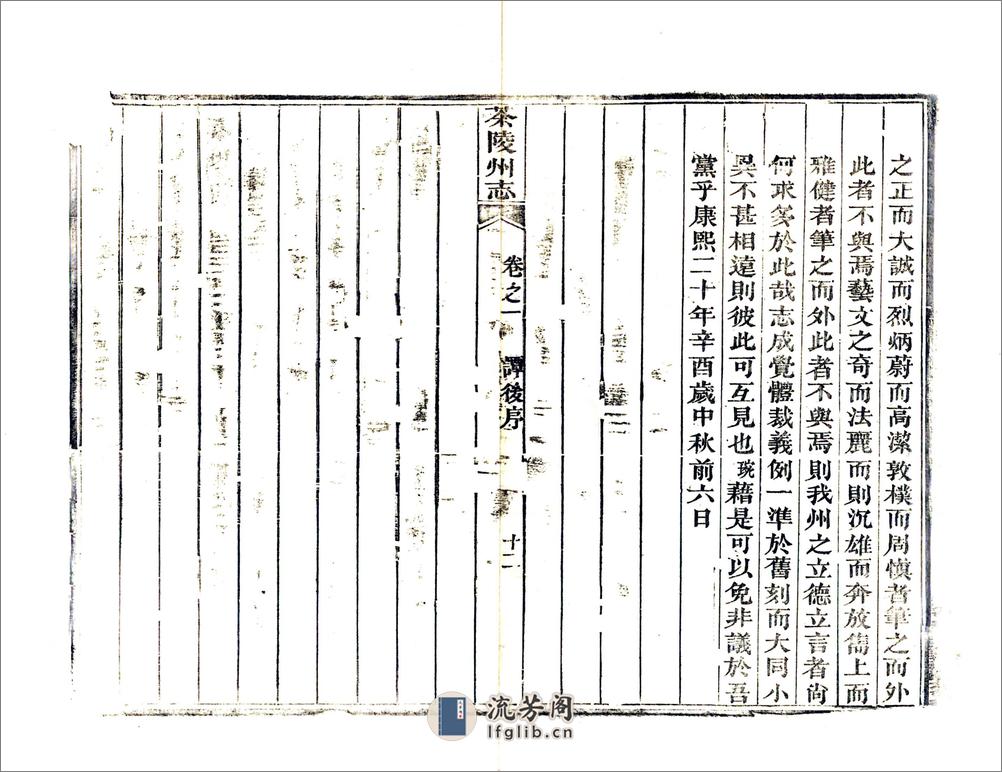 之正而大誠而烈炳蔚而高潔敦樸而周慎者筆之而外
此者不與焉藝文之奇而法麗而則沉雄而奔放雋上而
雅健者筆之而外此者不與焉則我州之立德立言者尚
何求多於此哉志成覺體裁義例一準於舊刻而大同小
異不甚相遠則彼此可互見也琬藉是可以免非議於吾
黨乎康熙二十年辛酉歲中秋前六日
茶陵州志
卷之一
譚後序
十二
流芳阁
lfglib.cn